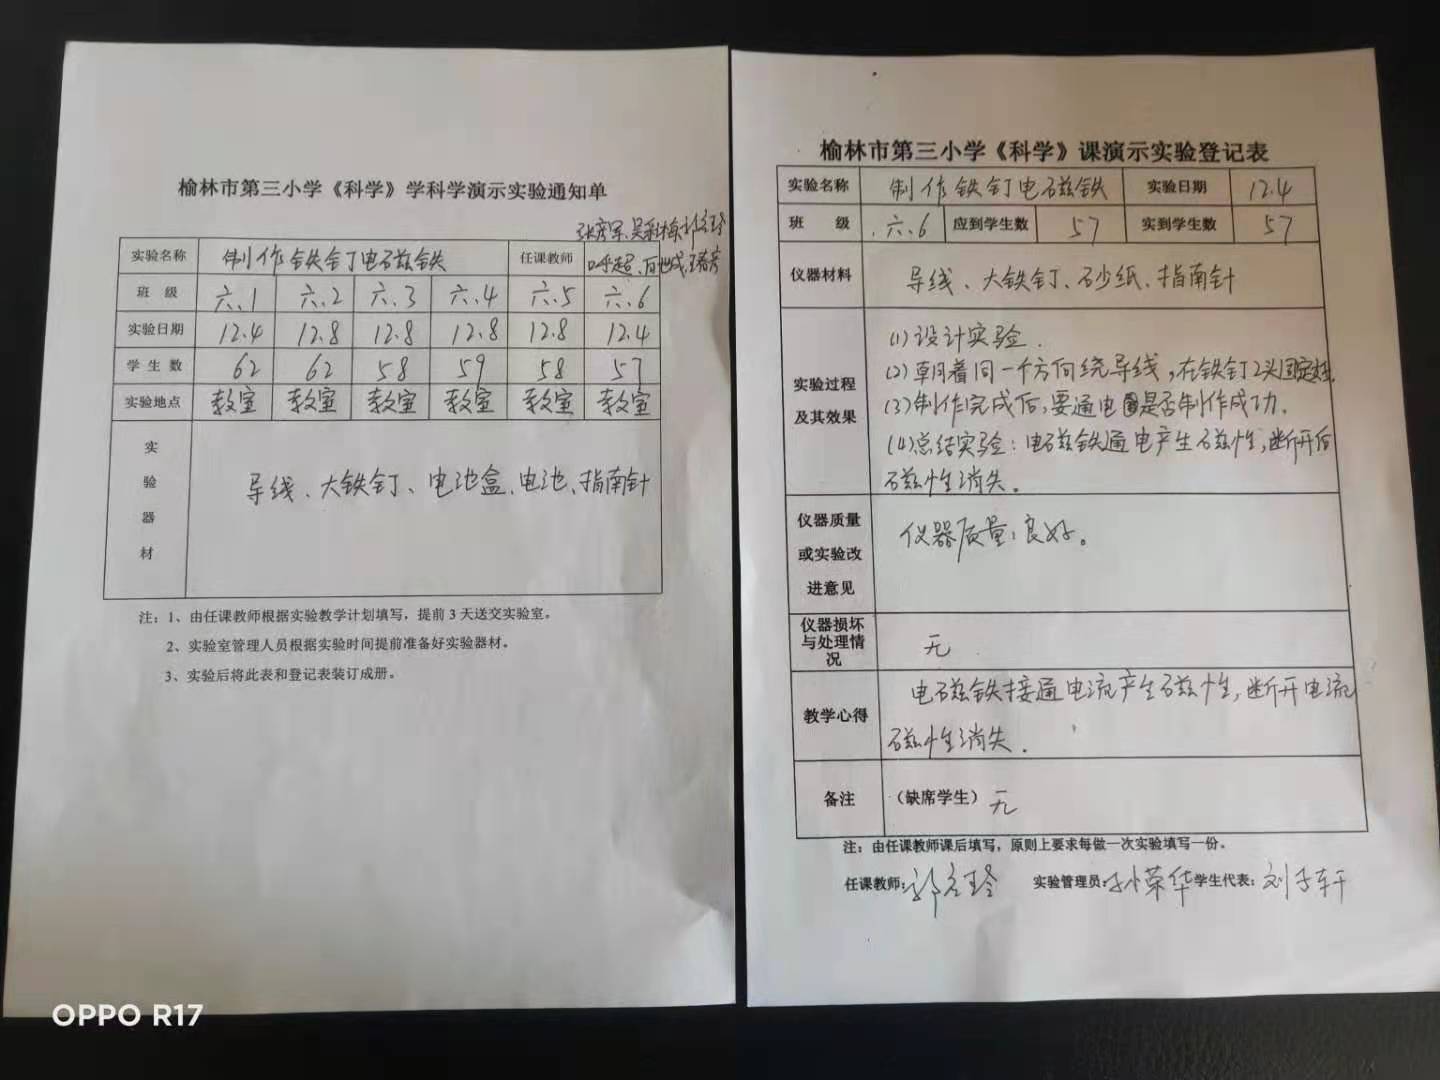 榆林市第三小学《科学》学科学演示实验通知单
实验名称 制作铁钉电磁铁 任课教师
班 级 六.1 六.2 六.3 六.4 六.5 六.6
实验日期 12.4 12.8 12.8 12.8 12.8 12.4
学 生 数 62 62 58 59 58 57
实验地点 教室 教室 教室 教室 教室 教室
实验器材
导线、大铁钉、电池盒、电池、指南针
注：1、由任课教师根据实验教学计划填写，提前 3 天送交实验室。
2、实验室管理人员根据实验时间提前准备好实验器材。
3、实验后将此表和登记表装订成册。
榆林市第三小学《科学》课演示实验登记表
实验名称 制作铁钉电磁铁 实验日期 12.4
班 级 六.6 应到学生数 57 实到学生数 57
仪器材料 导线、大铁钉、砂纸、指南针
实验过程及其效果
(1)设计实验.
(2)朝着同一个方向绕导线,在铁钉2头固定
(3)制作完成后,要通电是否制作成功.
(4)总结实验:电磁铁通电产生磁性,断开后
磁性消失.
仪器质量
或实验改
进意见
仪器质量:良好。
仪器损坏
与处理情
况
无
教学心得
电磁铁接通电流产生磁性,断开电流
磁性消失.
备注 （缺席学生）无
注：由任课教师课后填写，原则上要求每做一次实验填写一份。
任课教师: 实验管理员:孙荣华 学生代表:刘子轩
OPPO R17